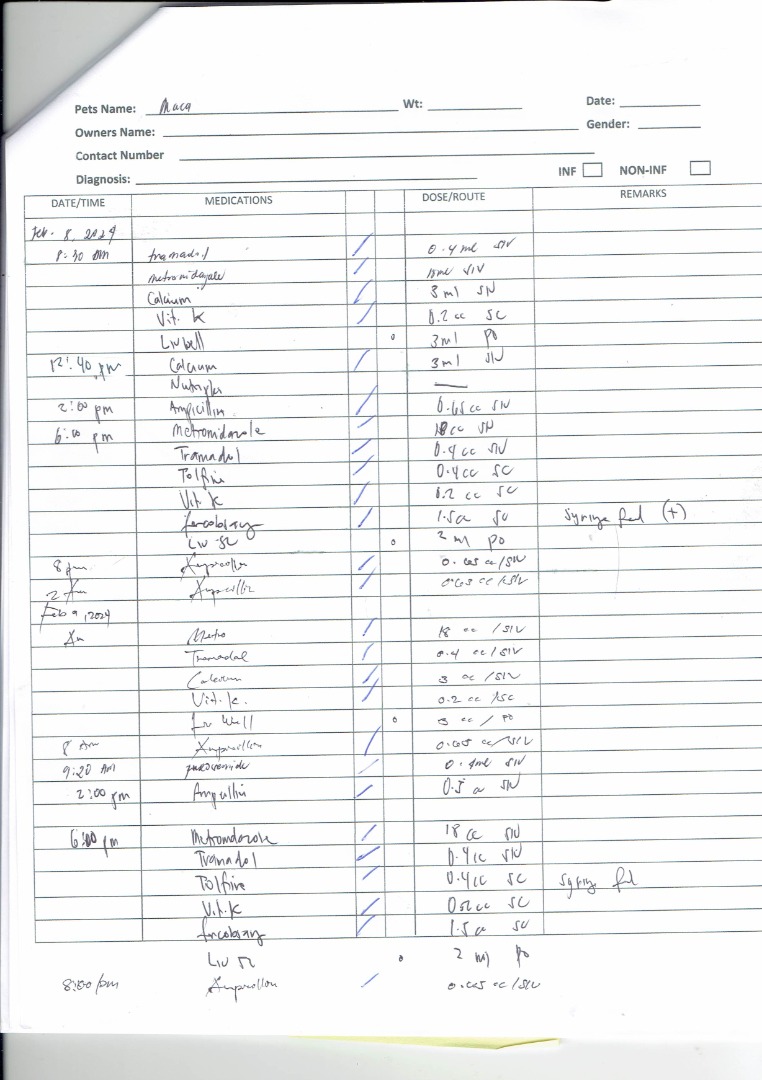 Pets Name: Maca Wt: Date:
Owners Name: Gender:
Contact Number
Diagnosis: INF NON-INF
DATE/TIME MEDICATIONS DOSE/ROUTE REMARKS
Feb. 8, 2024
8:30 AM tramadol / 0.4 ml SIV
metronidazole / SIV
Calcium / 3 ml SIV
Vit. K / 0.2 cc SC
Livbell o 3 ml PO
12:40 pm Calcium / 3 ml SIV
—
2:00 pm Ampicillin / 0.65 cc SIV
6:00 pm Metronidazole / 18 cc SIV
Tramadol / 0.4 cc SIV
Tolfine / 0.4 cc SC
Vit. K / 0.2 cc SC
/ 1.5 cc
Liv 52 o 2 ml PO
8 pm Ampicillin / 0.65 cc/SIV
2 Am Ampicillin / 0.65 cc/SIV
Feb 9, 2024
Metro / 18 cc /SIV
Tramadol / 0.4 cc /SIV
Calcium / 3 cc /SIV
Vit. K. / 0.2 cc /SC
Liv Well o 3 cc / PO
8 Am Ampicillin / 0.65 cc/SIV
9:20 AM / SIV
2:00 pm Ampicillin / 0.5 cc SIV
6:00 pm Metronidazole / 18 cc SIV
Tramadol / 0.4 cc SIV
Tolfine / 0.4 cc SC Syringe fed
Vit. K / SC
/ 1.5 cc
Liv 52 o 2 ml PO
8:00 pm Ampicillin / 0.65 cc /SIV